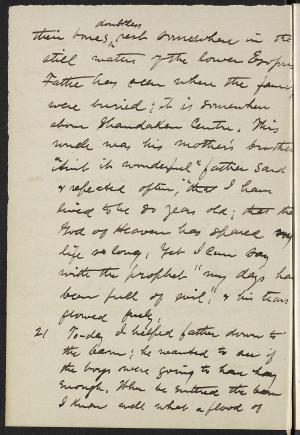 doubtless
their bones, rest somewhere in the
still waters of the lower Esopus
Father has seen where the family
were buried; it is somewhere
above Shandaken Centre. This
uncle was his mother's brother
"Ain't it wonderful" father said
& repeated often, "that I have
lived to be 80 years old; that the
God of Heaven has spared my
life so long. Yet I can say
with the prophet "my days have
been full of evil," & his tears
flowed freely.
21 To-day I helped father down to
the barn; he wanted to see if
the boys were going to have hay
enough. When he entered the barn
I knew well what a flood of